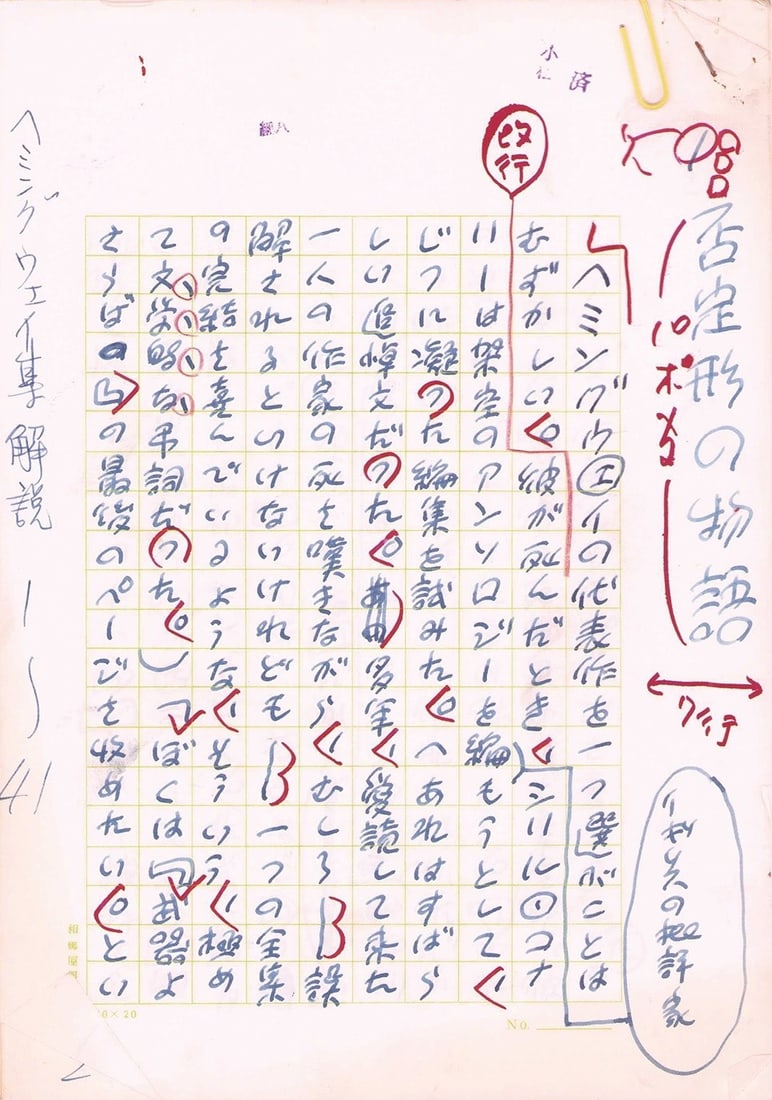 否定形の物語
10ポ
7行
改行
ヘミングウェイの代表作を一つ選ぶことは
むずかしい。彼が死んだとき、シリル・コナ
イギリスの批評家
リーは架空のアンソロジーを編もうとして、
じつに凝った編集を試みた。(あれはすばら
しい追悼文だった。多年、愛読して来た
一人の作家の死を嘆きながら、むしろ―誤
解されるといけないけれども―一つの全集
の完結を喜んでいるような、そういう、極め
て文学的な弔詞だった。)「ぼくは『武器よ
さらば』の最後のページを収めたい。とい
ヘミングウェイ集解説 1〜41
済
0×20
No.